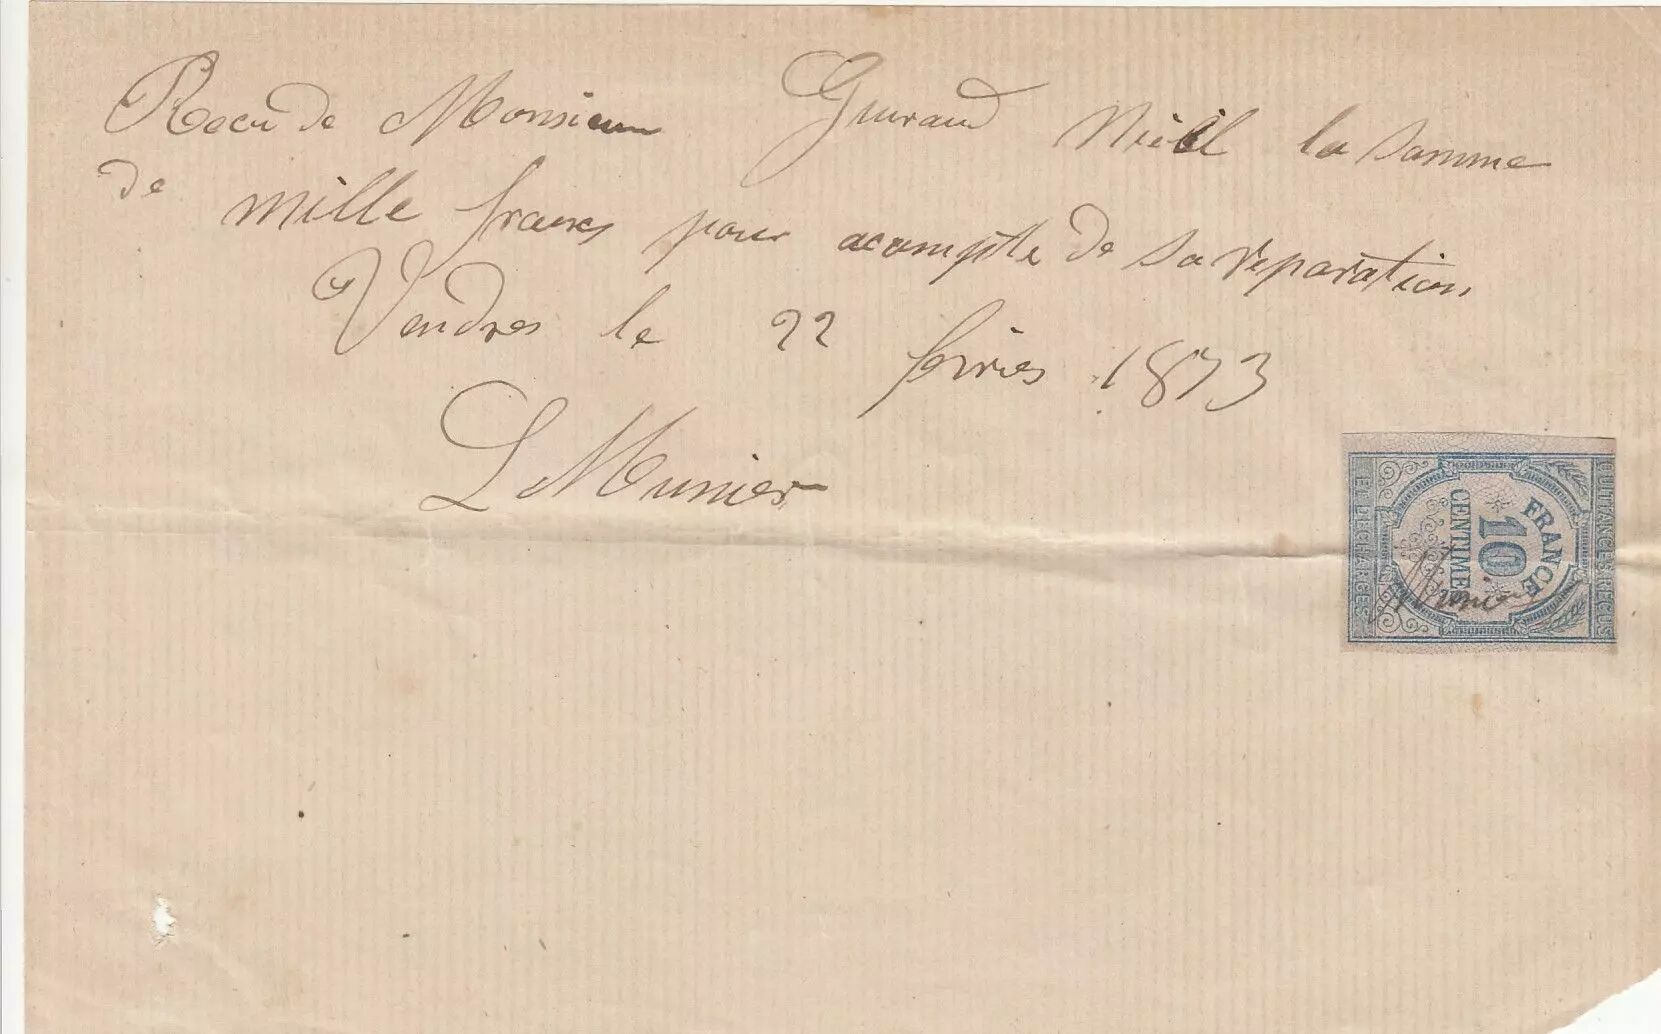 Recu de Monsieur Guiraud Nièl la somme
de mille francs pour acompte de sa reparation
Vendres le 22 fevrier 1873
L Munier
QUITTANCES REÇUS
FRANCE
10
CENTIMES
ET DÉCHARGES
Munier